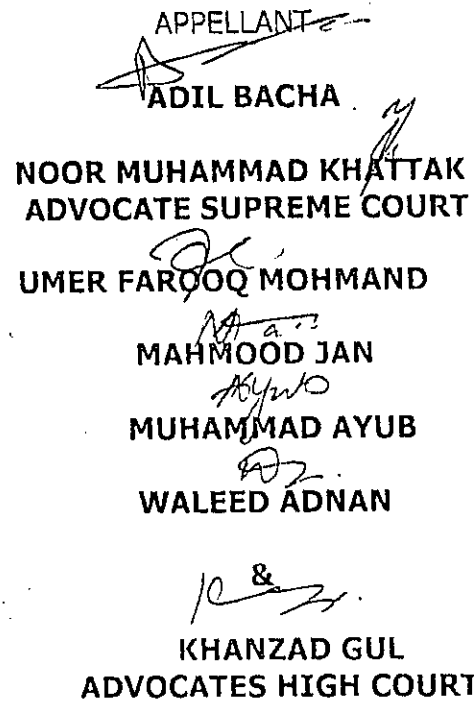 APPELLANT
ADIL BACHA
NOOR MUHAMMAD KHATTAK
ADVOCATE SUPREME COURT
UMER FAROOQ MOHMAND
MAHMOOD JAN
Ayub
MUHAMMAD AYUB
WALEED ADNAN
&
KHANZAD GUL
ADVOCATES HIGH COURT